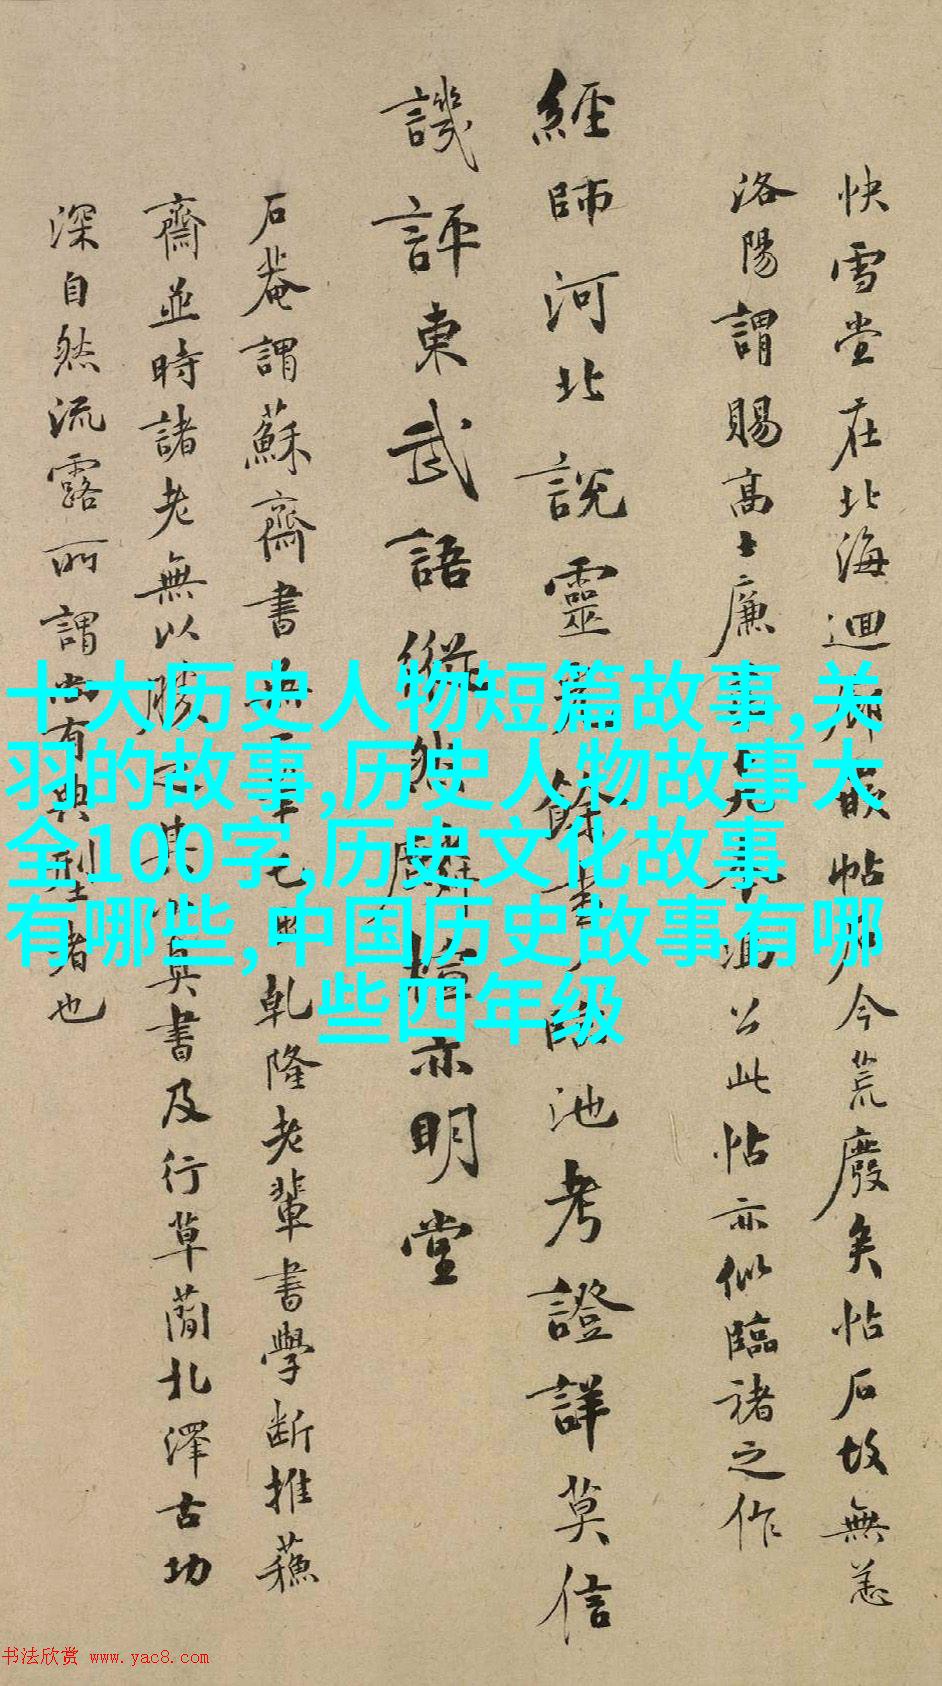 快雪堂在北海迴廊嵌帖石今荒廢矣帖石故無恙
洛陽謂賜高士廉公此帖亦似臨褚之作
經師河北說靈餘書臨池考證詳莫信
譏評東武語縱然麟楦亦明堂
石菴謂蘇齋書無一筆是自乾隆老輩書學斷推蘇
齋並時諸老無以勝之其真書及行草蘭北澤古功
深自然流露所謂尚有典型者也
十大历史人物短篇故事,关
羽的故事,历史人物故事大
全100字,历史文化故事
有哪些,中国历史故事有哪
些四年级
书法欣赏 www.yac8.com